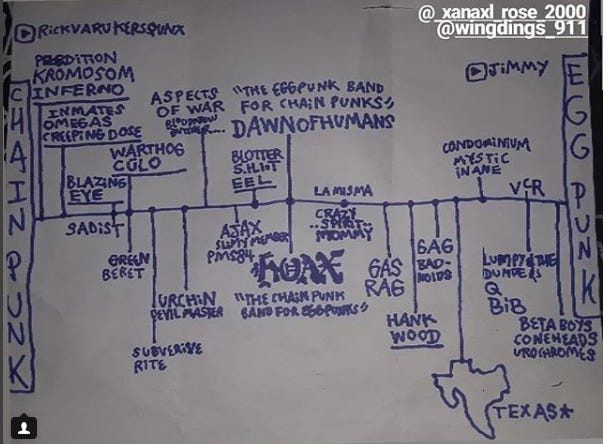 @_xanaxl_rose_2000
@wingdings_911
RICKVARUKERSPUNX
JIMMY
CHAIN PUNK
EGG PUNK
PERDITION
KROMOSOM
INFERNO
INMATES
OMEGAS
CREEPING DOSE
WARTHOG
CULO
BLAZING
EYE
SADIST
GREEN
BERET
SUBVERSIVE
RITE
URCHIN
DEVIL MASTER
ASPECTS
OF WAR
AJAX
SLIMY MEMBER
PMS84
BLOTTER
S.H.I.T
EEL
"THE EGGPUNK BAND
FOR CHAIN PUNKS"
DAWN OF HUMANS
HOAX
"THE CHAIN PUNK
BAND FOR EGGPUNKS"
LA MISMA
CRAZY
SPIRIT
MOMMY
GAS
RAG
HANK
WOOD
GAG
BAD-
NOIDS
TEXAS*
CONDOMINIUM
MYSTIC
INANE
VCR
LUMPY & THE
DUMPERS
Q
BIB
BETA BOYS
CONEHEADS
UROCHROMES